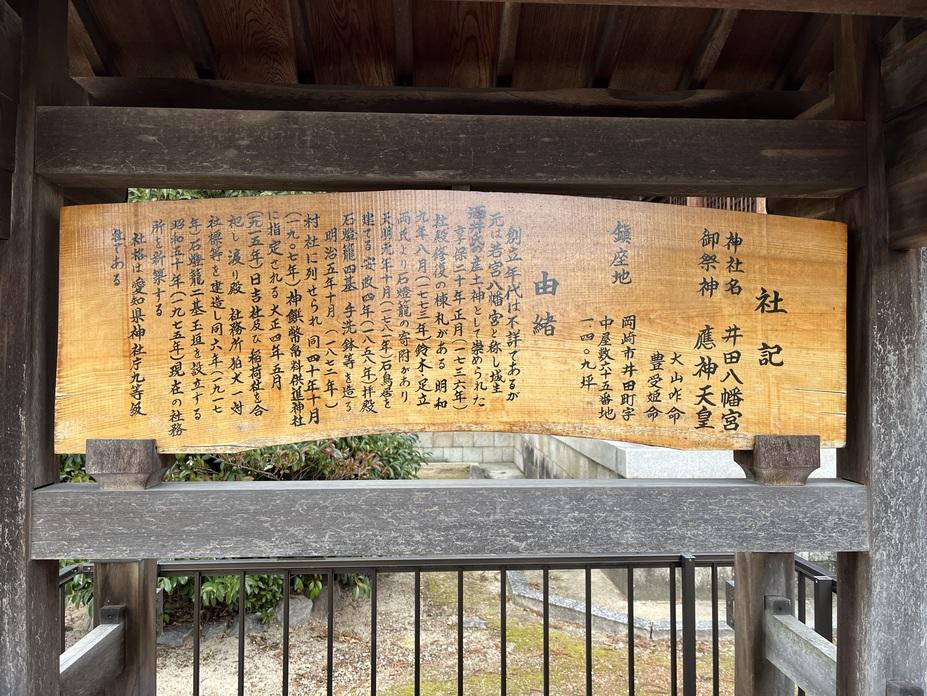 社記
神社名 井田八幡宮
御祭神 應神天皇
大山咋命
豊受姫命
鎮座地 岡崎市井田町字
中屋敷六十五番地
一四〇九坪
由緒
創立年代は不詳であるが
元は若宮八幡宮と称し城主
酒井氏の産土神として崇められた
享保二十年正月(一七三六年)
社殿修復の棟札がある 明和
九年八月(一七七三年)鈴木足立
両氏より石燈籠の寄附があり
天明元年十一月(一七八一年)石鳥居を
建てる 安政四年(一八五八年)拝殿
石燈籠四基 手洗鉢等を造る
明治五年十月(一八七二年)
村社に列せられ 同四十年十月
(一九〇七年)神饌幣帛料供進神社
に指定される 大正四年五月
(一九一五年)日吉社及び稲荷社を合
祀し渡り殿 社務所狛犬一対
社標等を建造し同六年(一九一七
年)石燈籠二基玉垣を設立する
昭和五十年(一九七五年)現在の社務
所を新築する
社格は愛知県神社庁九等級
社である